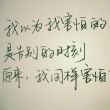 我以为我害怕的
是告别的时刻
原来，我同样害怕